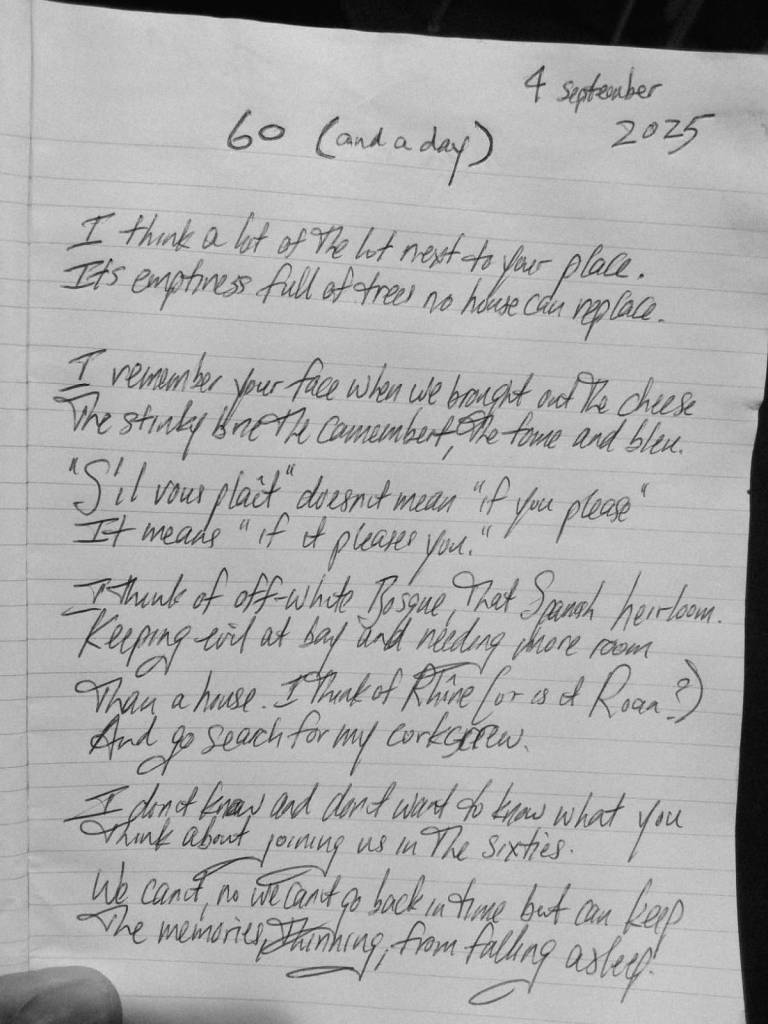 4 September
2025
60 (and a day)
I think a lot of the lot next to your place.
It's emptiness full of trees no house can replace.
I remember your face when we brought out the cheese
The stinky brie the camembert, the tome and bleu.
"S'il vous plaît" doesn't mean "if you please"
It means "if it pleases you."
I think of off-white Bosque, that Spanish heirloom.
Keeping evil at bay and needing more room
Than a house. I think of Rhîne (or is it Roan?)
And go search for my corkscrew.
I don't know and don't want to know what you
think about joining us in the sixties.
We can't, no we can't go back in time but can keep
The memories, thinning, from falling asleep.